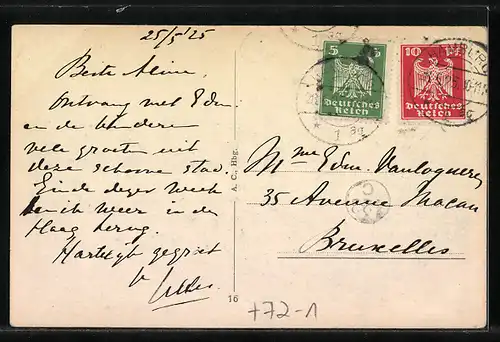 25/5 '25
Beste Aline,
Ontvang met Edm.
en de kinderen
vele groeten uit
deze schoone stad.
Einde dezer week
ben ik weer in den
Haag terug.
Hartelijk gegroet
A. C., Hbg.
16
5 Pf.
Deutsches
Reich
10 Pf.
Deutsches
Reich
HAMBURG
1 *
Mme Edm. Vanlooqueren
35 Avenue Macau
Bruxelles
+72-1